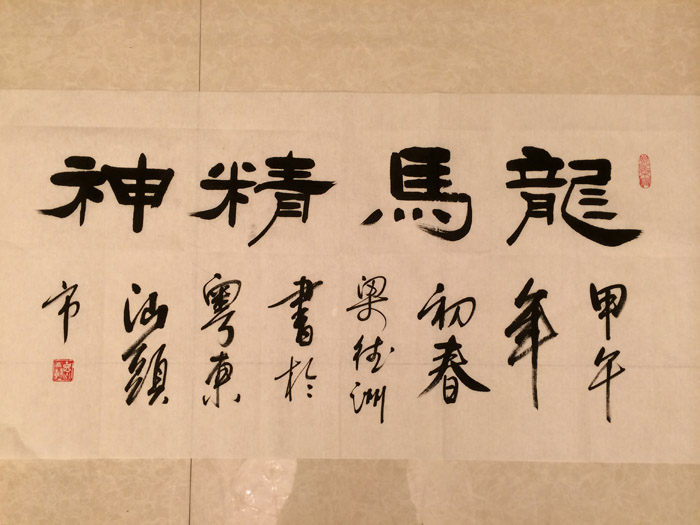 龍馬精神
甲午
年
初春
梁德洲
書於
粤東
汕頭
市